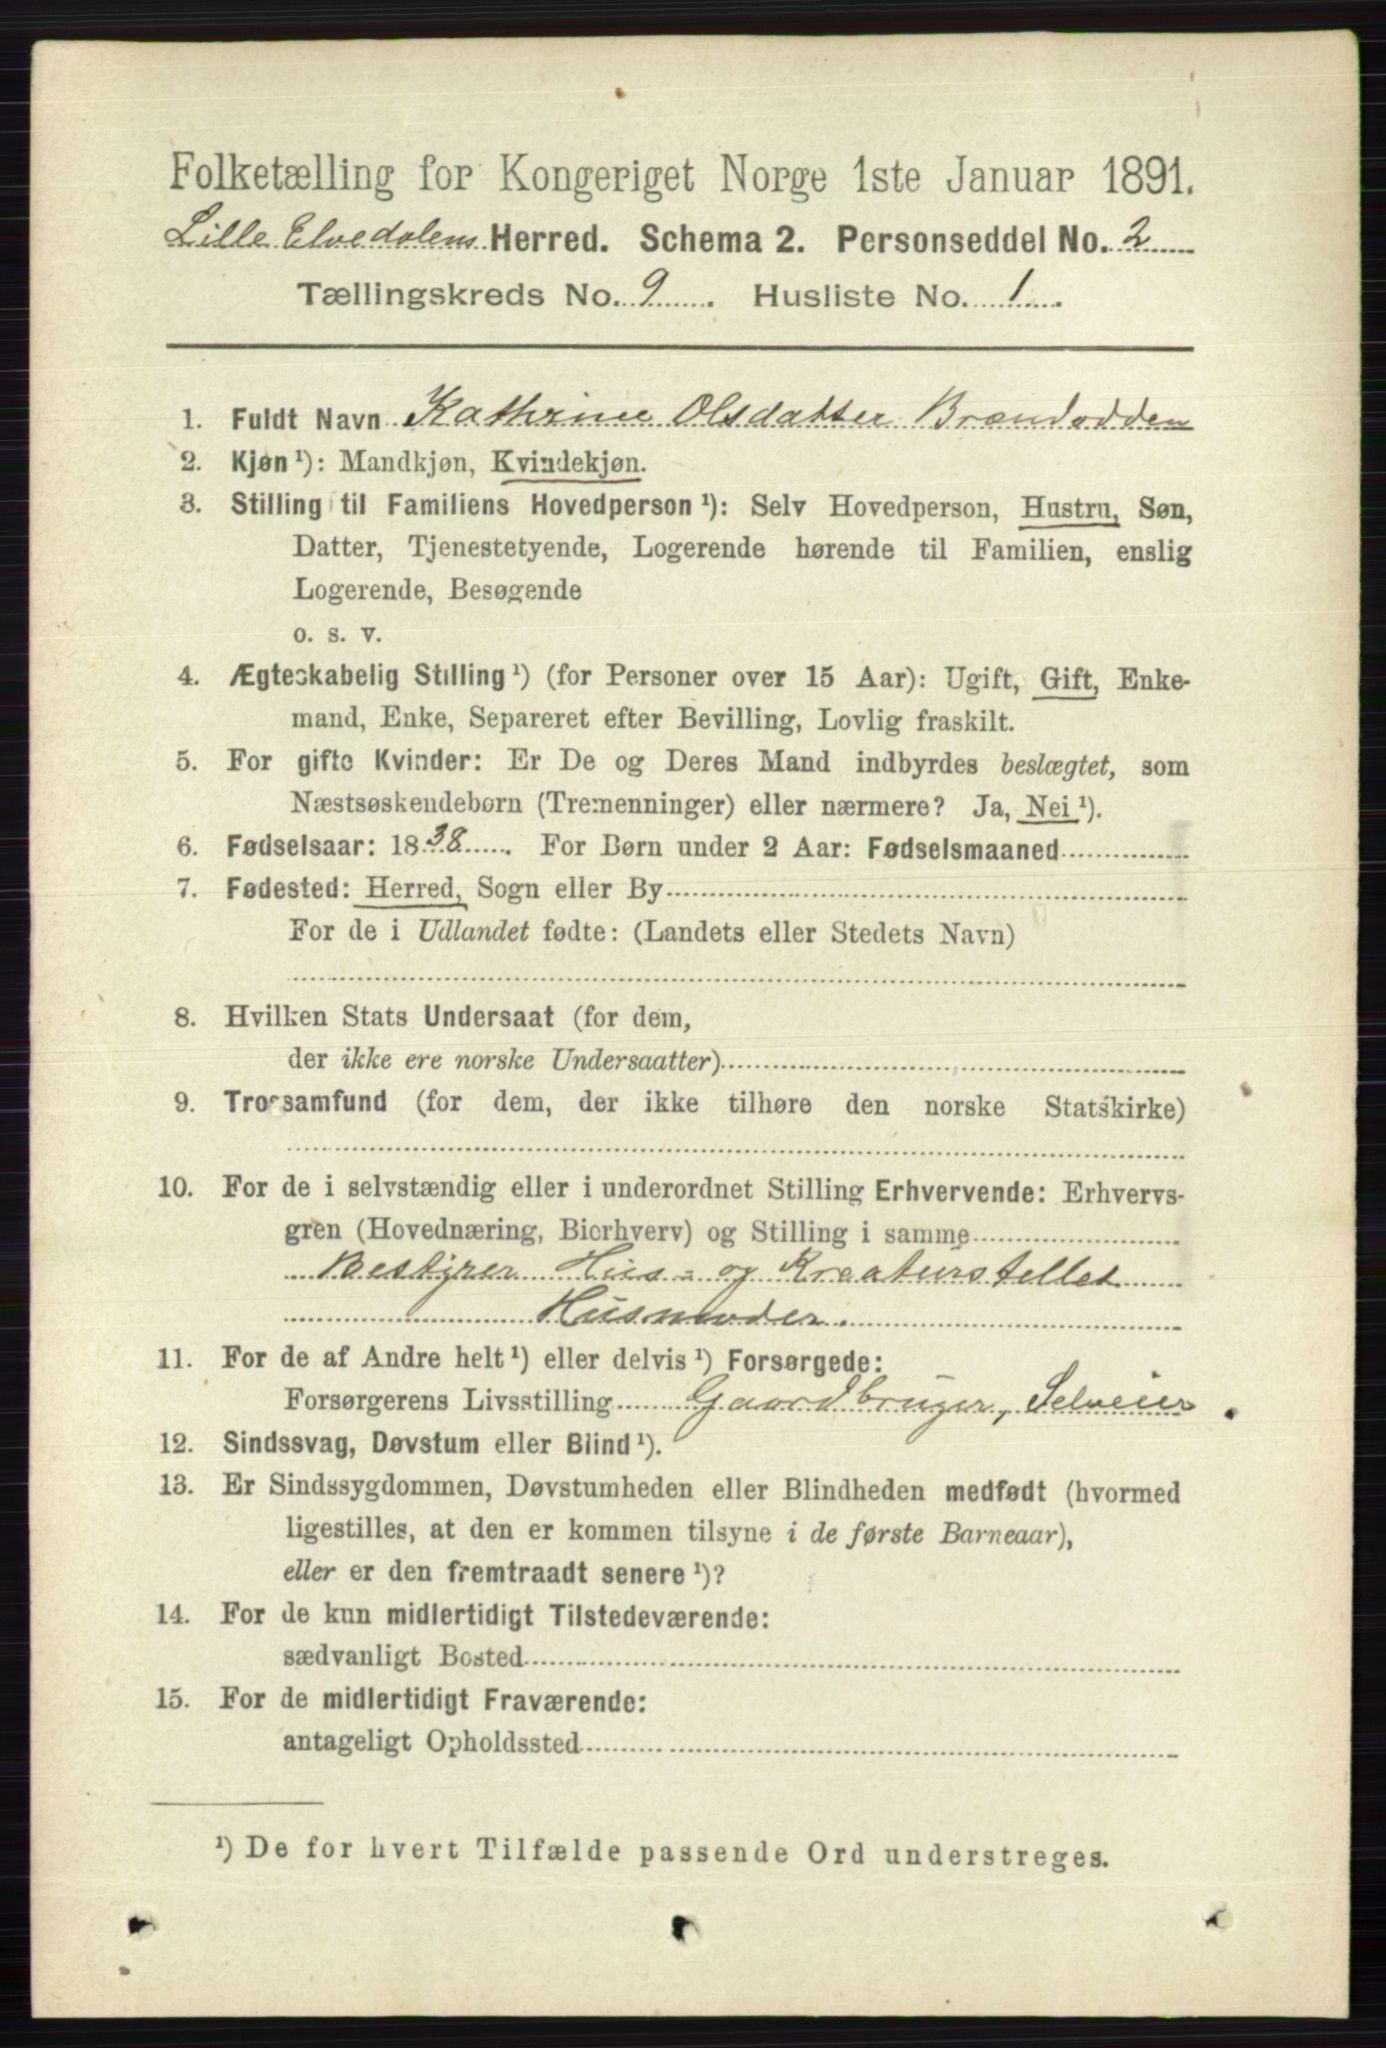 Folketælling for Kongeriget Norge 1ste Januar 1891.
Lille Elvedalens Herred. Schema 2. Personseddel No. 2
Tællingskreds No. 9. Husliste No. 1.
1. Fuldt Navn Kathrine Olsdatter Brændodden
2. Kjøn ¹): Mandkjøn, Kvindekjøn.
3. Stilling til Familiens Hovedperson ¹): Selv Hovedperson, Hustru, Søn,
Datter, Tjenestetyende, Logerende hørende til Familien, enslig
Logerende, Besøgende
o. s. v.
4. Ægteskabelig Stilling ¹) (for Personer over 15 Aar): Ugift, Gift, Enke-
mand, Enke, Separeret efter Bevilling, Lovlig fraskilt.
5. For gifte Kvinder: Er De og Deres Mand indbyrdes beslægtet, som
Næstsøskendebørn (Tremenninger) eller nærmere? Ja, Nei ¹).
6. Fødselsaar: 1838. For Børn under 2 Aar: Fødselsmaaned
7. Fødested: Herred, Sogn eller By
For de i Udlandet fødte: (Landets eller Stedets Navn)
8. Hvilken Stats Undersaat (for dem,
der ikke ere norske Undersaatter)
9. Trossamfund (for dem, der ikke tilhøre den norske Statskirke)
10. For de i selvstændig eller i underordnet Stilling Erhvervende: Erhvervs-
gren (Hovednæring, Bierhverv) og Stilling i samme
Bestyrer Hus- og Kreaturstellet
Husmoder.
11. For de af Andre helt ¹) eller delvis ¹) Forsørgede:
Forsørgerens Livsstilling Gaardbruger, Selveier
12. Sindssvag, Døvstum eller Blind ¹).
13. Er Sindssygdommen, Døvstumheden eller Blindheden medfødt (hvormed
ligestilles, at den er kommen tilsyne i de første Barneaar),
eller er den fremtraadt senere ¹)?
14. For de kun midlertidigt Tilstedeværende:
sædvanligt Bosted
15. For de midlertidigt Fraværende:
antageligt Opholdssted
¹) De for hvert Tilfælde passende Ord understreges.